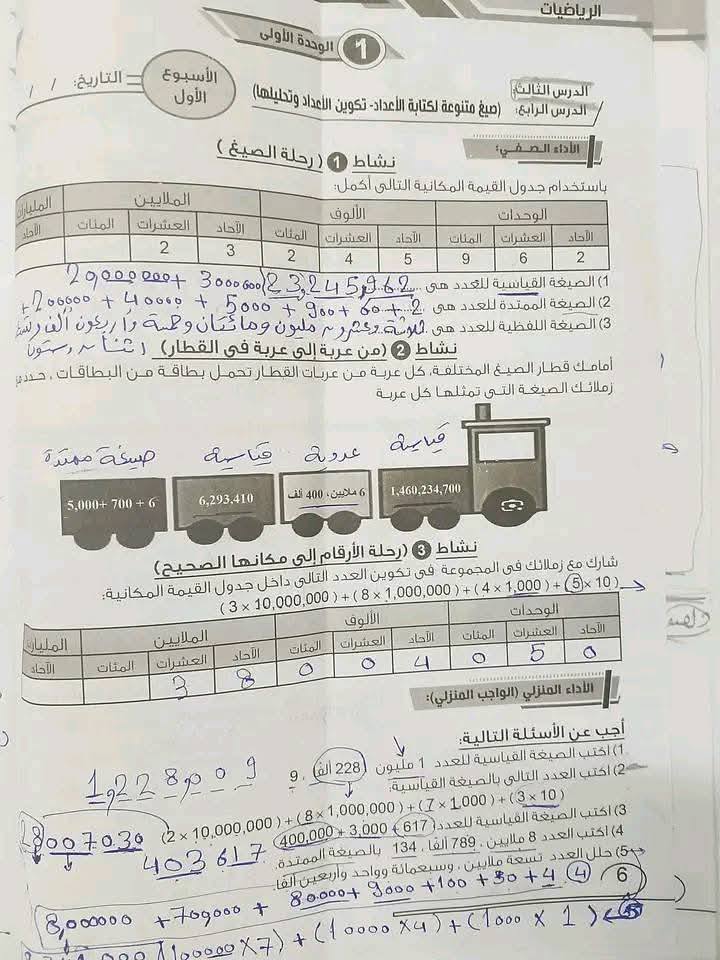 الرياضيات
1 الوحدة الأولى
الأسبوع الأول
التاريخ: / /
الدرس الثالث:
الدرس الرابع: (صيغ متنوعة لكتابة الأعداد- تكوين الأعداد وتحليلها)
الأداء الصفي:
نشاط 1 (رحلة الصيغ)
باستخدام جدول القيمة المكانية التالي أكمل:
الوحدات الألوف الملايين المليارات
الآحاد العشرات المئات الآحاد العشرات المئات الآحاد العشرات المئات الآحاد
2 6 9 5 4 2 3 2
1) الصيغة القياسية للعدد هي 23,245,962
20000000 + 3000000
2) الصيغة الممتدة للعدد هي +200000 + 40000 + 5000 + 900 + 60 + 2
3) الصيغة اللفظية للعدد هي ثلاثة وعشرون مليون ومائتان وخمسة وأربعون ألف
اثنان وستون
نشاط 2 (من عربة إلى عربة في القطار)
أمامك قطار الصيغ المختلفة، كل عربة من عربات القطار تحمل بطاقة من البطاقات ، حدد مع
زملائك الصيغة التي تمثلها كل عربة
قياسية عددية قياسية صيغة ممتدة
1,460,234,700
6 ملايين، 400 ألف
6,293,410
5,000+ 700 + 6
نشاط 3 (رحلة الأرقام إلى مكانها الصحيح)
شارك مع زملائك في المجموعة في تكوين العدد التالي داخل جدول القيمة المكانية:
(3 × 10,000,000) + (8 × 1,000,000) + (4 × 1,000) + (5 × 10)
الوحدات الألوف الملايين المليارات
الآحاد العشرات المئات الآحاد العشرات المئات الآحاد العشرات المئات الآحاد
0 5 0 4 0 0 8 3
الأداء المنزلي (الواجب المنزلي):
أجب عن الأسئلة التالية:
1) اكتب الصيغة القياسية للعدد 1 مليون ، 228 ألف ، 9
1,228,009
2) اكتب العدد التالي بالصيغة القياسية:
(2 × 10,000,000) + (8 × 1,000,000) + (7 × 1,000) + (3 × 10)
28007030
3) اكتب الصيغة القياسية للعدد: 400,000 + 3,000 + 617
403617
4) اكتب العدد 8 ملايين ، 789 ألف ، 134 بالصيغة الممتدة.
5) حلل العدد تسعة ملايين ، وسبعمائة وواحد وأربعين ألفًا.
6
8,000000 + 700000 + 80000 + 9000 + 100 + 30 + 4 4
(100000 × 7) + (10000 × 4) + (1000 × 1)